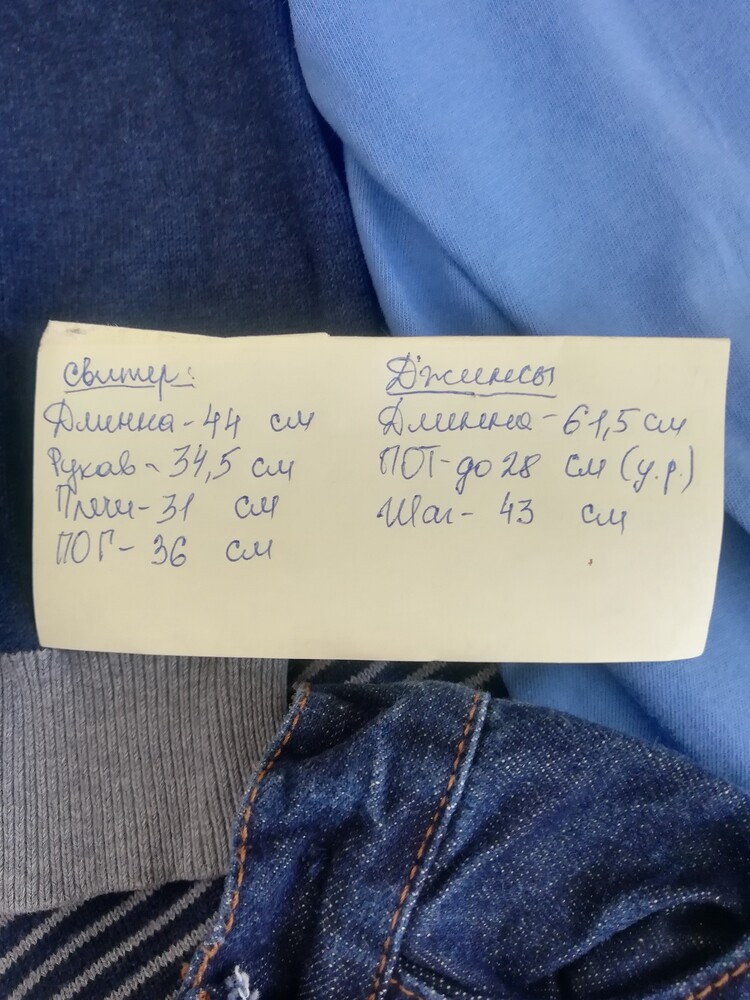 Свитер:
Длинна - 44 см
Рукав - 34,5 см
Плечи - 31 см
ПОГ - 36 см
Джинсы
Длинна - 61,5 см
ПОТ - до 28 см (у.р.)
Шаг - 43 см